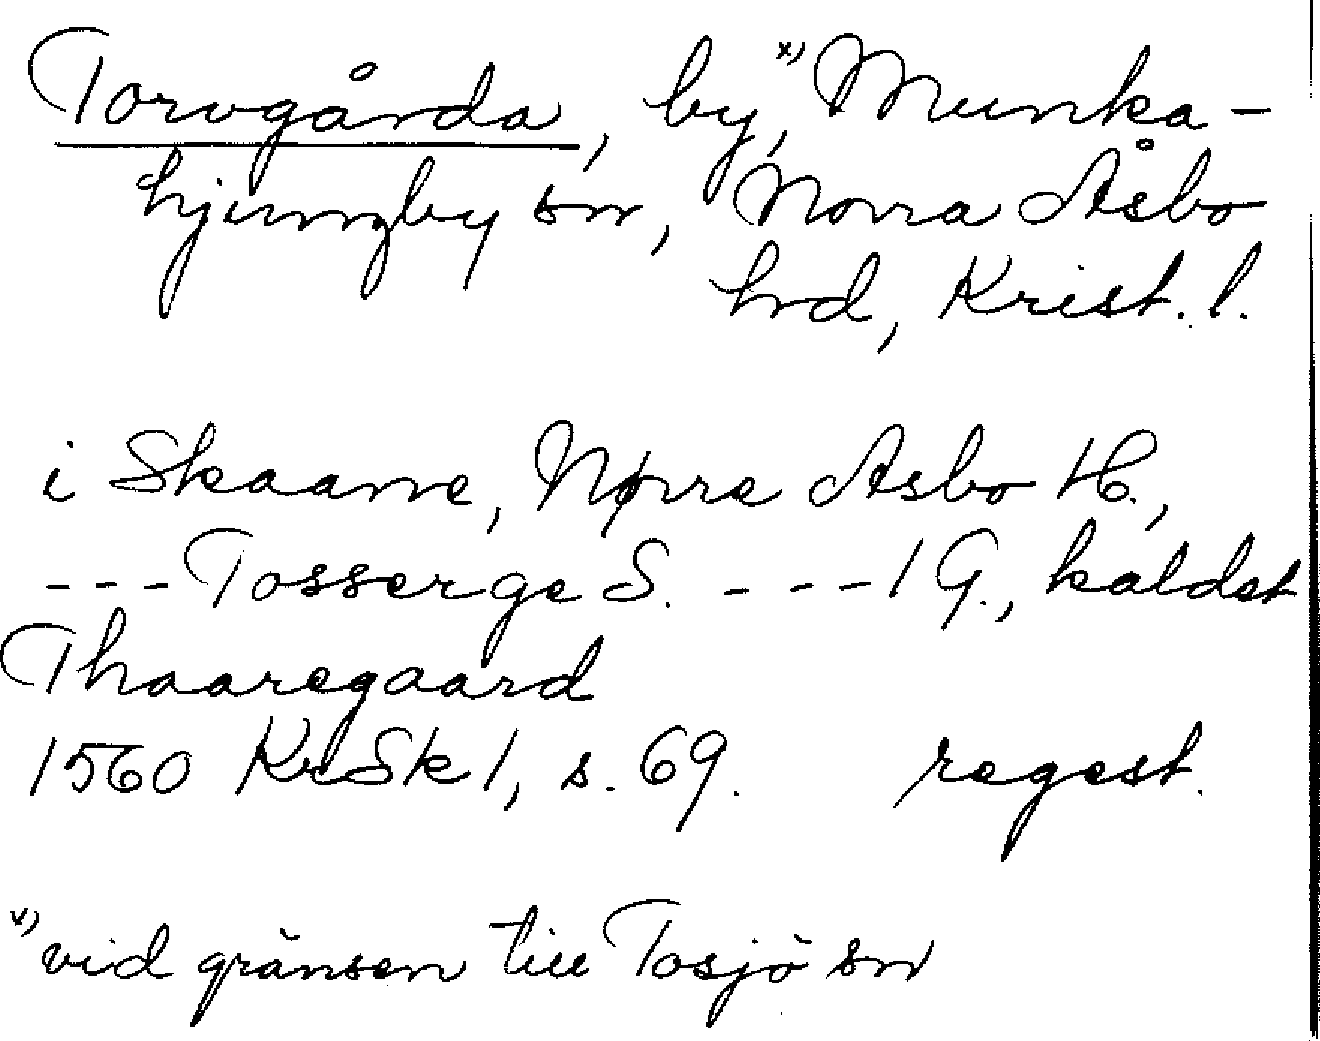 Torvgårda, by,ˣ⁾ Munka-
hjungby sn, Norra Åsbo
hrd, Krist. l.
i Skaane, Nørre Asbo H.,
---Tosserge S. ---1 G., kaldet
Thaaregaard
1560 KrSk 1, s. 69. regest.
ˣ⁾ vid gränsen till Tosjö sn